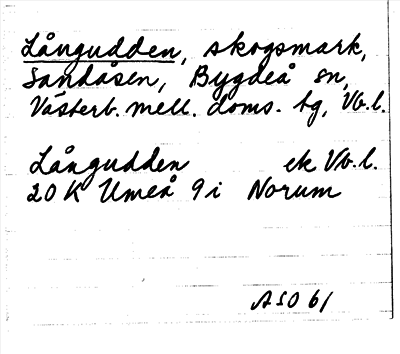 Långudden, skogsmark,
Sandåsen, Bygdeå sn,
Västerb. mell. doms. tg, Vb. l.
Långudden ek Vb. l.
20 K Umeå 9 i Norum
ASO 61